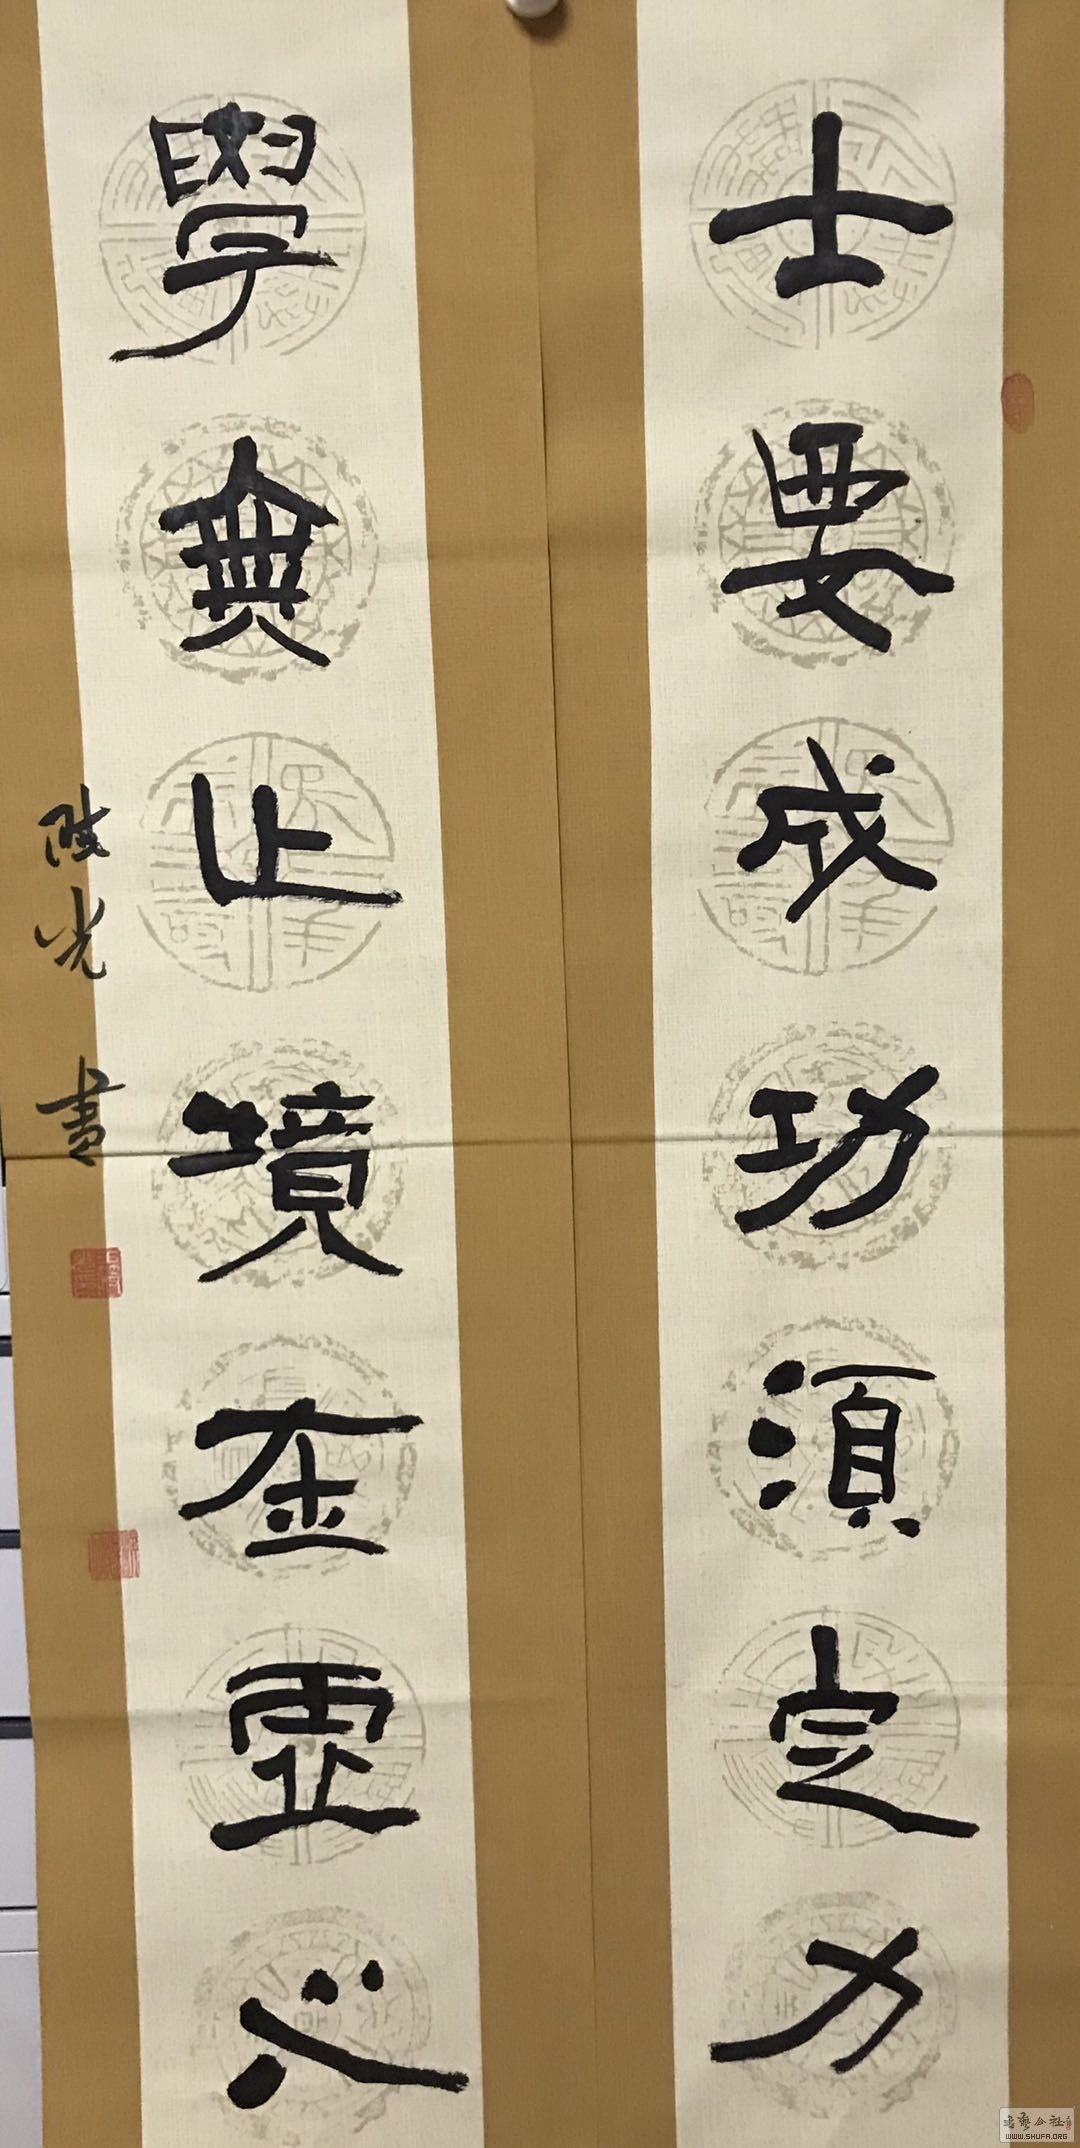 士要成功須定力
學無止境在虛心
光書
WWW.SHUFA.ORG